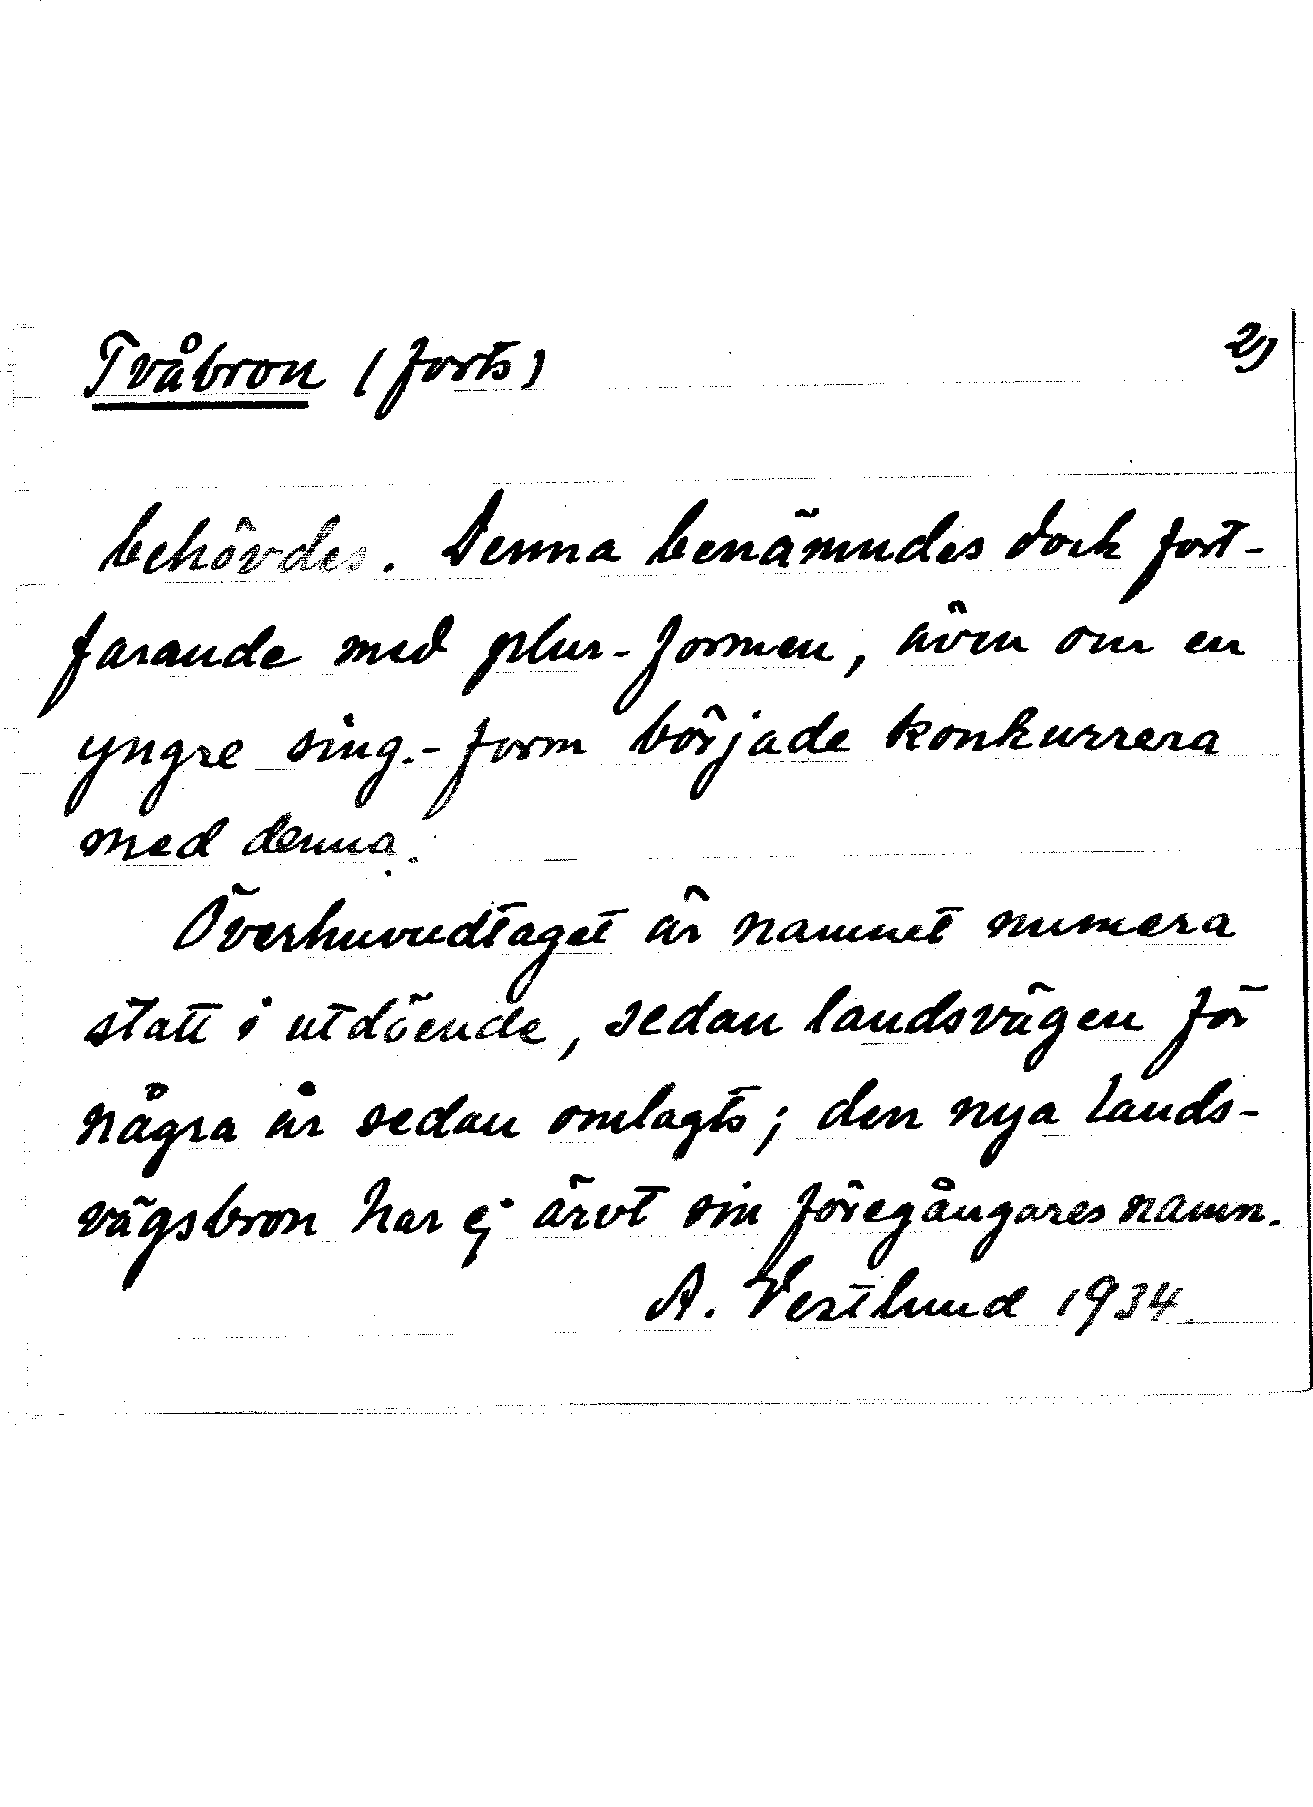 Tvåbron (forts) 2)
behövdes. Denna benämndes dock fort-
farande med plur-formen, även om en
yngre sing.-form började konkurrera
med denna.
Överhuvudtaget är namnet numera
statt i utdöende, sedan landsvägen för
några år sedan omlagts; den nya lands-
vägsbron har ej ärvt sin föregångares namn.
A. Vestlund 1934.